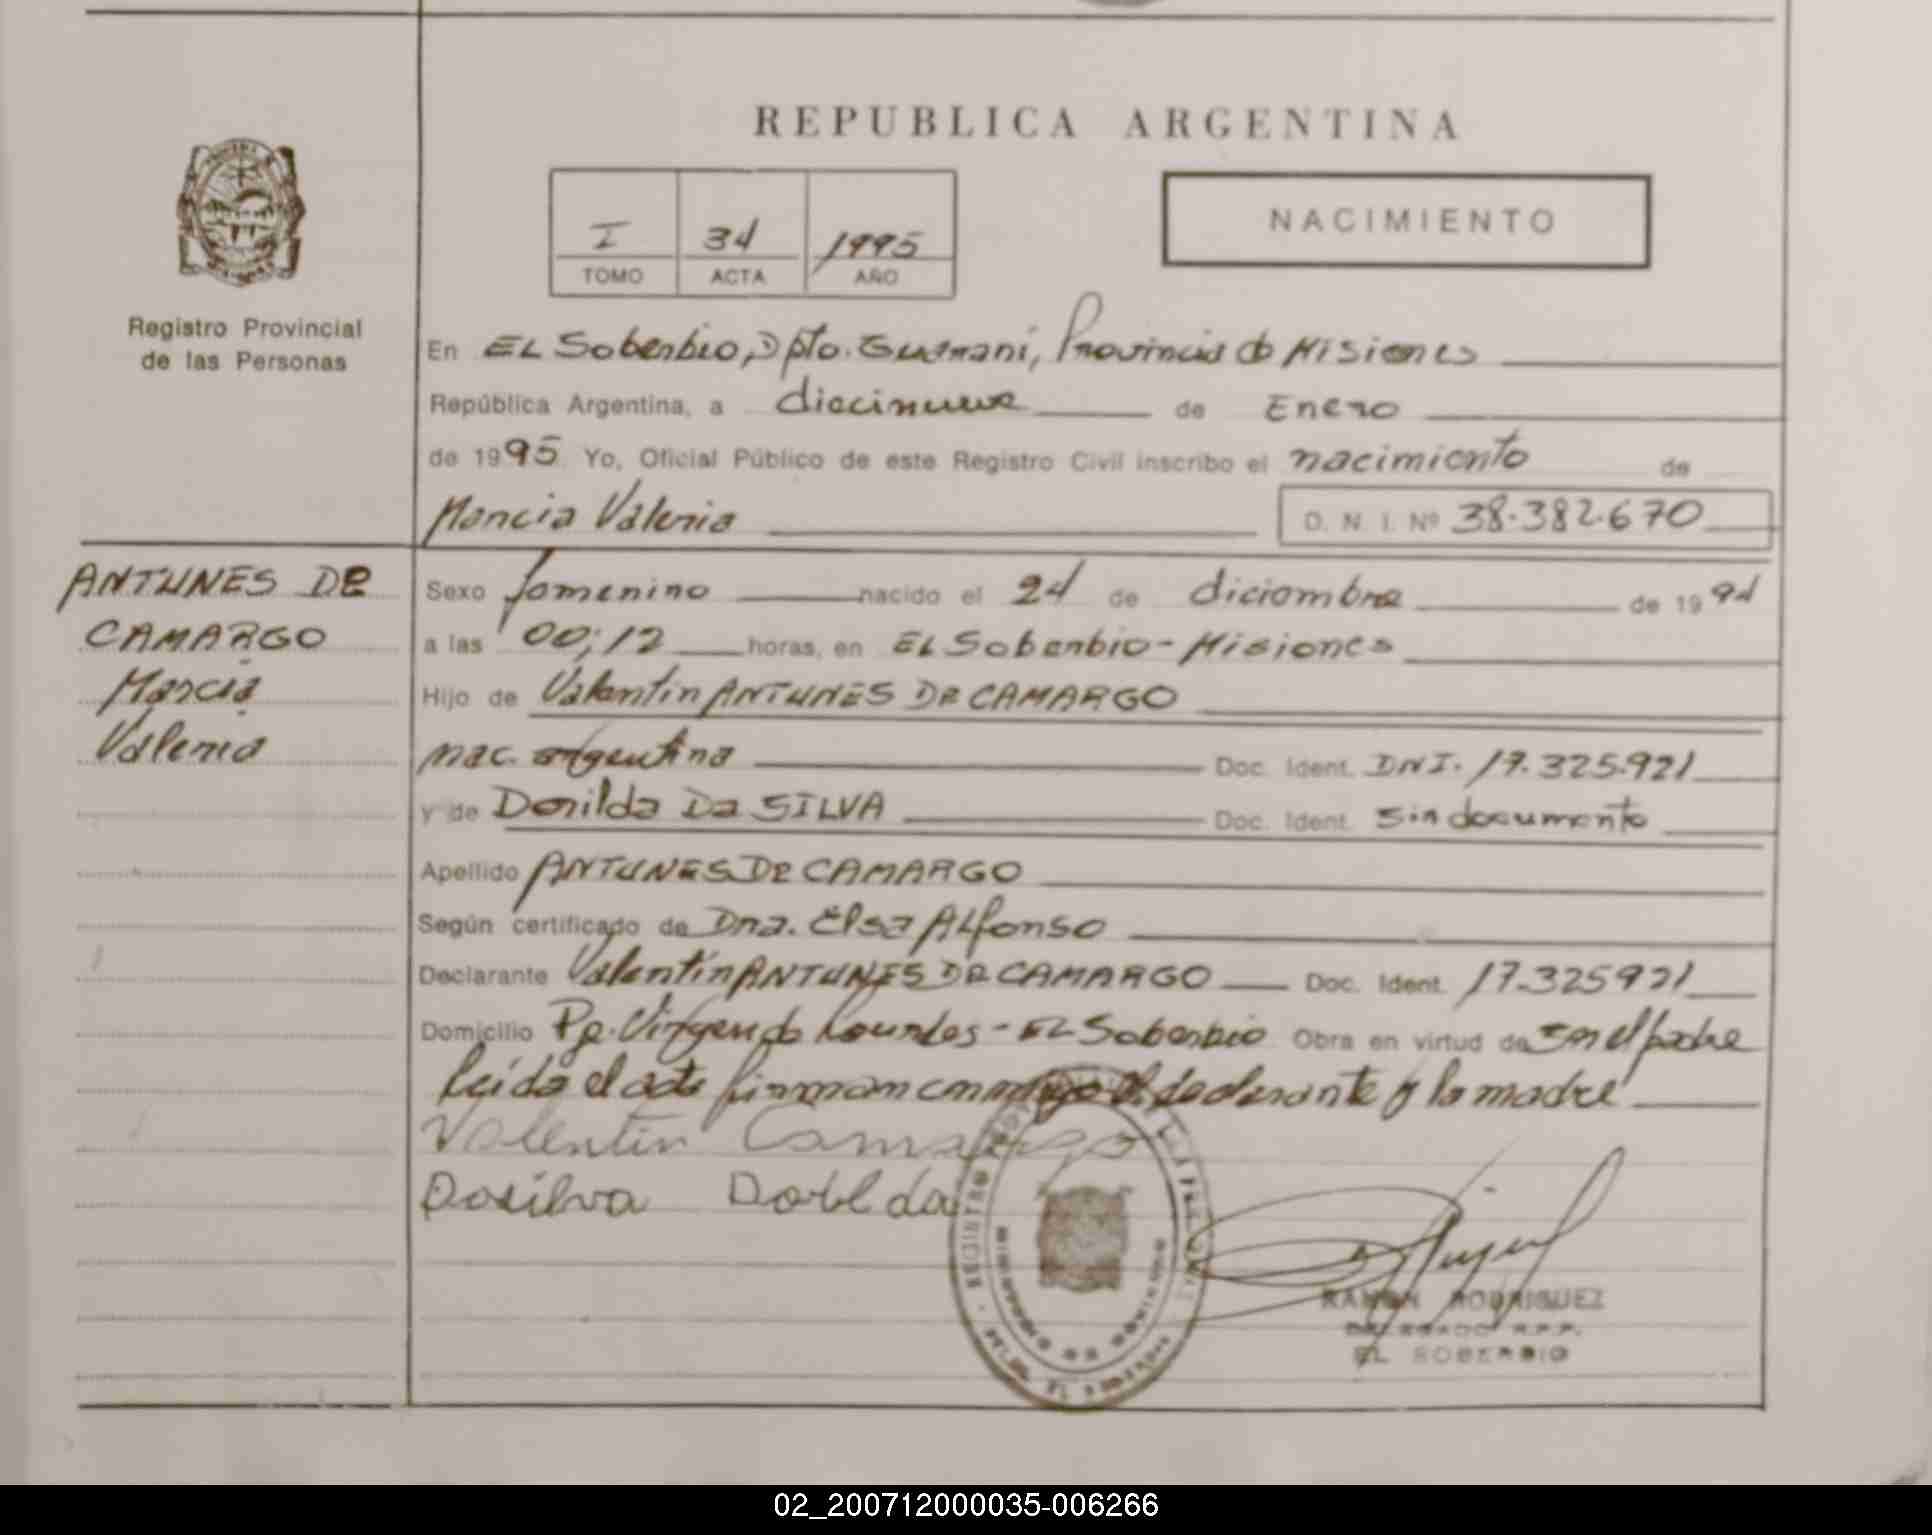 REPUBLICA ARGENTINA
I 34 1995
TOMO ACTA AÑO
NACIMIENTO
Registro Provincial
de las Personas
En EL Soberbio, Dpto. Guarani, Provincia de Misiones
República Argentina, a diecinueve de Enero
de 1995 Yo, Oficial Público de este Registro Civil inscribo el nacimiento de
Marcia Valeria D. N. I. Nº 38.382.670
ANTUNES DE
CAMARGO
Marcia
Valeria
Sexo femenino nacido el 24 de diciembre de 1994
a las 00;12 horas, en EL Soberbio - Misiones
Hijo de Valentin ANTUNES DE CAMARGO
nac. argentina Doc. Ident. DNI. 17.325.921
y de Dorilda Da SILVA Doc. Ident. Sin documento
Apellido ANTUNES DE CAMARGO
Según certificado de Dra. Elsa Alfonso
Declarante Valentín ANTUNES DE CAMARGO Doc. Ident. 17.325921
Domicilio Pje. Virgen de Lourdes - EL Soberbio Obra en virtud de Ser el padre
leída el acta firman conmigo el declarante y la madre
Valentin Camargo
Dasilva
REGISTRO
RAMON RODRIGUEZ
DELEGADO R.P.P.
EL SOBERBIO
02_200712000035-006266